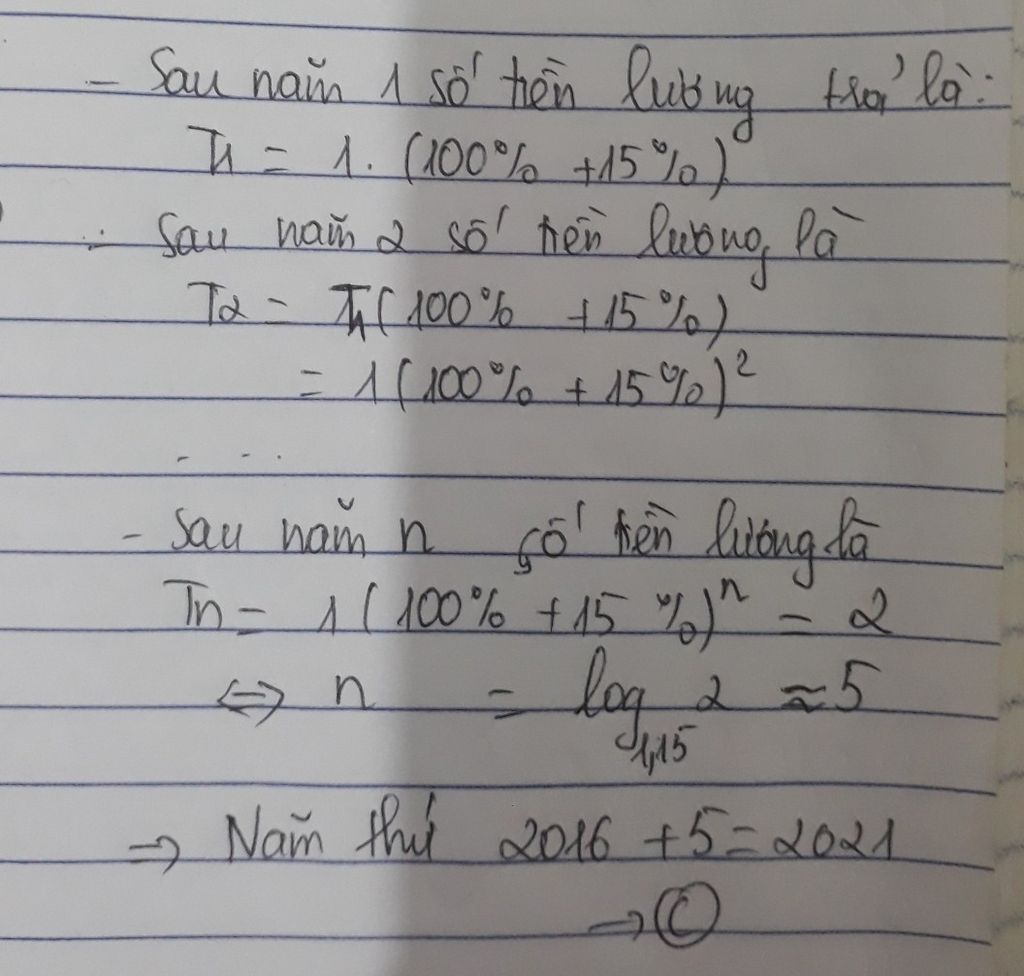 - Sau năm 1 số tiền lương trả là:
T1 = 1. (100% +15%)
- Sau năm 2 số tiền lương là
T2 = T1(100% +15%)
= 1(100% + 15%)²
- - - .
- Sau năm n số tiền lương là
Tn = 1(100% +15%)ⁿ = 2
⇔ n = log₁,₁₅ 2 ≈ 5
⇒ Năm thứ 2016 + 5 = 2021
→ Ⓒ